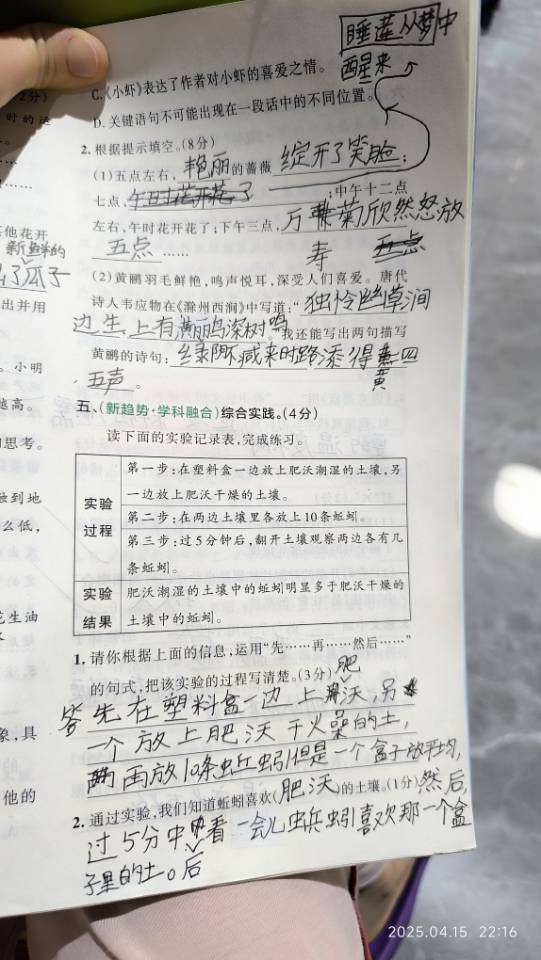 睡莲从梦中
醒来
C.《小虾》表达了作者对小虾的喜爱之情。
D.关键语句不可能出现在一段话中的不同位置。
2.根据提示填空。(8分)
(1)五点左右,艳丽的蔷薇绽开了笑脸;
七点,午时花开花了;中午十二点
左右,午时花开花了;下午三点,万寿菊欣然怒放
五点…… 五点
(2)黄鹂羽毛鲜艳,鸣声悦耳,深受人们喜爱。唐代
诗人韦应物在《滁州西涧》中写道:“独怜幽草涧
边生,上有黄丽鸟深树鸣。我还能写出两句描写
黄鹂的诗句:绿阴不减来时路添得黄四
五声。
五、(新趋势·学科融合)综合实践。(4分)
读下面的实验记录表,完成练习。
实验
过程
第一步:在塑料盒一边放上肥沃潮湿的土壤,另
一边放上肥沃干燥的土壤。
第二步:在两边土壤里各放上10条蚯蚓。
第三步:过5分钟后,翻开土壤观察两边各有几
条蚯蚓。
实验
结果
肥沃潮湿的土壤中的蚯蚓明显多于肥沃干燥的
土壤中的蚯蚓。
1.请你根据上面的信息,运用“先……再……然后……”
的句式,把该实验的过程写清楚。(3分)
答先在塑料盒一边上肥沃,另
一个放上肥沃干燥的土,
再放10条蚯蚓但是一个盒子放平均,
2.通过实验,我们知道蚯蚓喜欢(肥沃)的土壤。(1分)然后,
过5分中后看一会儿蚯蚓喜欢那一个盒
子里的土。
时的这
其他花开
新鲜的
了瓜子
出并用
。小明
越高。
思考。
触到地
么低,
花生油
象,具
他的
2025.04.15 22:16